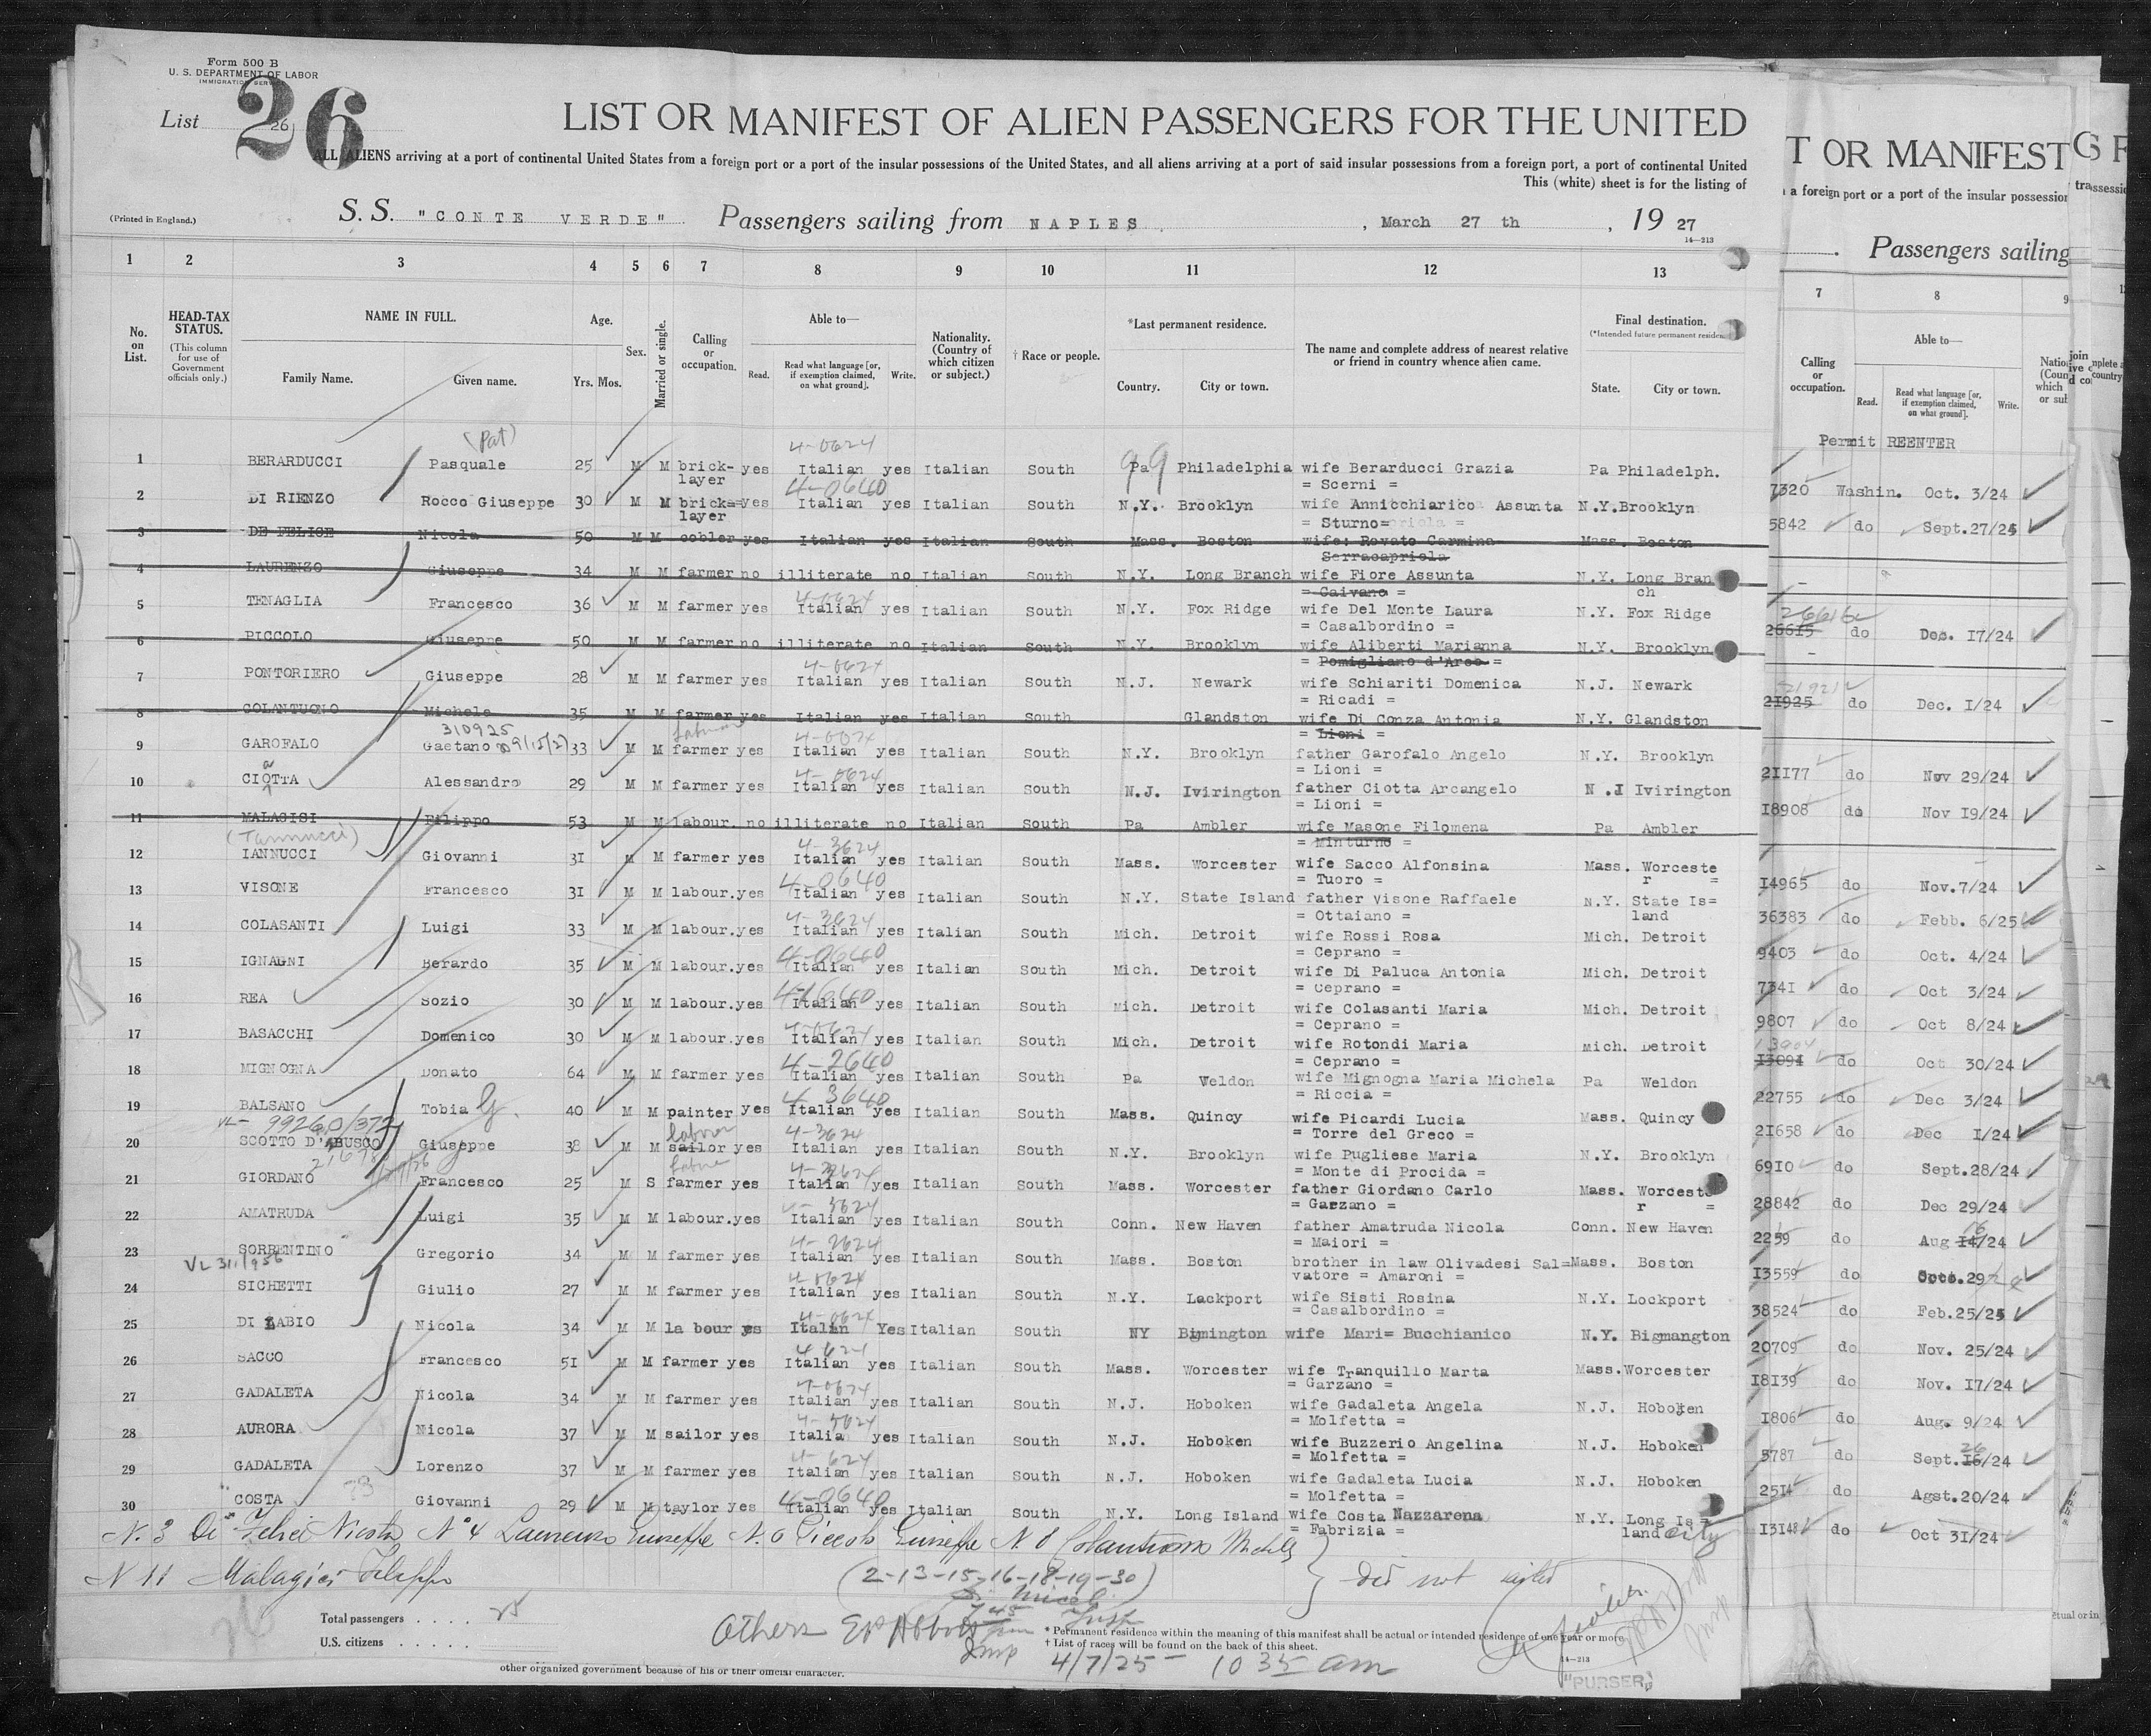 Form 500 B
U. S. DEPARTMENT OF LABOR
IMMIGRATION SERVICE
List 26
26
LIST OR MANIFEST OF ALIEN PASSENGERS FOR THE UNITED
ALL ALIENS arriving at a port of continental United States from a foreign port or a port of the insular possessions of the United States, and all aliens arriving at a port of said insular possessions from a foreign port, a port of continental United
This (white) sheet is for the listing of
(Printed in England.)
S. S. "CONTE VERDE" Passengers sailing from NAPLES , March 27 th , 19 27
14—213
1 2 3 4 5 6 7 8 9 10 11 12 13
No. on List.
HEAD-TAX STATUS.
(This column for use of Government officials only.)
NAME IN FULL.
Family Name. Given name.
Age.
Yrs. Mos.
Sex.
Married or single.
Calling or occupation.
Able to—
Read. Read what language [or, if exemption claimed, on what ground]. Write.
Nationality. (Country of which citizen or subject.)
† Race or people.
*Last permanent residence.
Country. City or town.
The name and complete address of nearest relative or friend in country whence alien came.
Final destination.
(*Intended future permanent residen
State. City or town.
(Pat) 4-0624
1 BERARDUCCI Pasquale 25 M M brick-layer yes Italian yes Italian South Pa Philadelphia wife Berarducci Grazia = Scerni = Pa Philadelph.
99
4-0640
2 DI RIENZO Rocco Giuseppe 30 M M bricke=layer yes Italian yes Italian South N.Y. Brooklyn wife Annicchiarico Assunta = Sturno= N.Y. Brooklyn
3 DE FELICE Nicola 50 M M cobler yes Italian yes Italian South Mass. Boston wife: Rovato Carmina Serracapriola Mass. Boston
4 LAURENZO Giuseppe 34 M M farmer no illiterate no Italian South N.Y. Long Branch wife Fiore Assunta = Caivano = N.Y. Long Branch
4-0624
5 TENAGLIA Francesco 36 M M farmer yes Italian yes Italian South N.Y. Fox Ridge wife Del Monte Laura = Casalbordino = N.Y. Fox Ridge
6 PICCOLO Giuseppe 50 M M farmer no illiterate no Italian South N.Y. Brooklyn wife Aliberti Marianna = Pomigliano d'Arco = N.Y. Brooklyn
4-0624
7 PONTORIERO Giuseppe 28 M M farmer yes Italian yes Italian South N.J. Newark wife Schiariti Domenica = Ricadi = N.J. Newark
8 COLANTUONO Michele 35 M M farmer yes Italian yes Italian South Glandston wife Di Conza Antonia = Lioni = N.Y. Glandston
310925
9 GAROFALO Gaetano 33 M M farmer yes Italian yes Italian South N.Y. Brooklyn father Garofalo Angelo = Lioni = N.Y. Brooklyn
a 4-0624
10 CIOTTA Alessandro 29 M M farmer yes Italian yes Italian South N.J. Ivirington father Ciotta Arcangelo = Lioni = N.J Ivirington
11 MALAGISI Filippo 53 M M labour. no illiterate no Italian South Pa Ambler wife Masone Filomena = Minturno = Pa Ambler
4-3624
12 IANNUCCI Giovanni 31 M M farmer yes Italian yes Italian South Mass. Worcester wife Sacco Alfonsina = Tuoro = Mass. Worcester =
4-0640
13 VISONE Francesco 31 M M labour. yes Italian yes Italian South N.Y. State Island father Visone Raffaele = Ottaiano = N.Y. State Is=land
4-3624
14 COLASANTI Luigi 33 M M labour. yes Italian yes Italian South Mich. Detroit wife Rossi Rosa = Ceprano = Mich. Detroit
4-0640
15 IGNAGNI Berardo 35 M M labour. yes Italian yes Italian South Mich. Detroit wife Di Paluca Antonia = Ceprano = Mich. Detroit
16 REA Sozio 30 M M labour. yes Italian yes Italian South Mich. Detroit wife Colasanti Maria = Ceprano = Mich. Detroit
4-0624
17 BASACCHI Domenico 30 M M labour. yes Italian yes Italian South Mich. Detroit wife Rotondi Maria = Ceprano = Mich. Detroit
4-2640
18 MIGNOGNA Donato 64 M M farmer yes Italian yes Italian South Pa Weldon wife Mignogna Maria Michela = Riccia = Pa Weldon
4-3640
19 BALSANO Tobia G. 40 M M painter yes Italian yes Italian South Mass. Quincy wife Picardi Lucia = Torre del Greco = Mass. Quincy
labour 4-3624
20 SCOTTO D'ABUSCO Giuseppe 38 M M sailor yes Italian yes Italian South N.Y. Brooklyn wife Pugliese Maria = Monte di Procida = N.Y. Brooklyn
21 GIORDANO Francesco 25 M S farmer yes Italian yes Italian South Mass. Worcester father Giordano Carlo = Garzano = Mass. Worcester =
22 AMATRUDA Luigi 35 M M labour. yes Italian yes Italian South Conn. New Haven father Amatruda Nicola = Maiori = Conn. New Haven
4-2624
23 SORRENTINO Gregorio 34 M M farmer yes Italian yes Italian South Mass. Boston brother in law Olivadesi Sal=vatore = Amaroni = Mass. Boston
4-0624
24 SICHETTI Giulio 27 M M farmer yes Italian yes Italian South N.Y. Lackport wife Sisti Rosina = Casalbordino = N.Y. Lockport
4-0624
25 DI LABIO Nicola 34 M M la bour yes Italin Yes Italian South NY Bimington wife Mari= Bucchianico N.Y. Bigmangton
26 SACCO Francesco 51 M M farmer yes Italian yes Italian South Mass. Worcester wife Tranquillo Marta = Garzano = Mass. Worcester
4-0624
27 GADALETA Nicola 34 M M farmer yes Italian yes Italian South N.J. Hoboken wife Gadaleta Angela = Molfetta = N.J. Hoboken
28 AURORA Nicola 37 M M sailor yes Italia yes Italian South N.J. Hoboken wife Buzzerio Angelina = Molfetta = N.J. Hoboken
4-624
29 GADALETA Lorenzo 37 M M farmer yes Italian yes Italian South N.J. Hoboken wife Gadaleta Lucia = Molfetta = N.J. Hoboken
4-0640
30 COSTA Giovanni 29 M M taylor yes Italian yes Italian South N.Y. Long Island wife Costa Nazzarena = Fabrizia = N.Y. Long Is=land city
N. 3 De Felice Nicola N° 4 Laurenzo Giuseppe N. 6 Piccolo Giuseppe N. 8 Colantuono Michele
N 11 Malagisi Filippo
did not
(2-13-15-16-18-19-30)
Total passengers . . . . 25
U.S. citizens . . . . .
Others
Insp
4/7/25 — 10 35 am
* Permanent residence within the meaning of this manifest shall be actual or intended residence of one year or more.
† List of races will be found on the back of this sheet.
14—213
other organized government because of his or their official character.
"PURSER"
T OR MANIFEST
a foreign port or a port of the insular possession
Passengers sailing
7 8 9
Calling or occupation.
Able to—
Read. Read what language [or, if exemption claimed, on what ground]. Write.
Permit REENTER
7320 Washin. Oct. 3/24
5842 do Sept.27/24
26615 do Dec. 17/24
21925 do Dec. 1/24
21177 do Nov 29/24
18908 do Nov 19/24
14965 do Nov.7/24
36383 do Febb. 6/25
9403 do Oct. 4/24
7341 do Oct 3/24
9807 do Oct 8/24
13091 do Oct 30/24
22755 do Dec 3/24
21658 do Dec 1/24
6910 do Sept.28/24
28842 do Dec 29/24
2259 do Aug 14/24
13559 do
38524 do Feb.25/25
20709 do Nov. 25/24
18139 do Nov. 17/24
1806 do Aug. 9/24
5787 do Sept.16/24
2514 do Agst.20/24
13148 do Oct 31/24